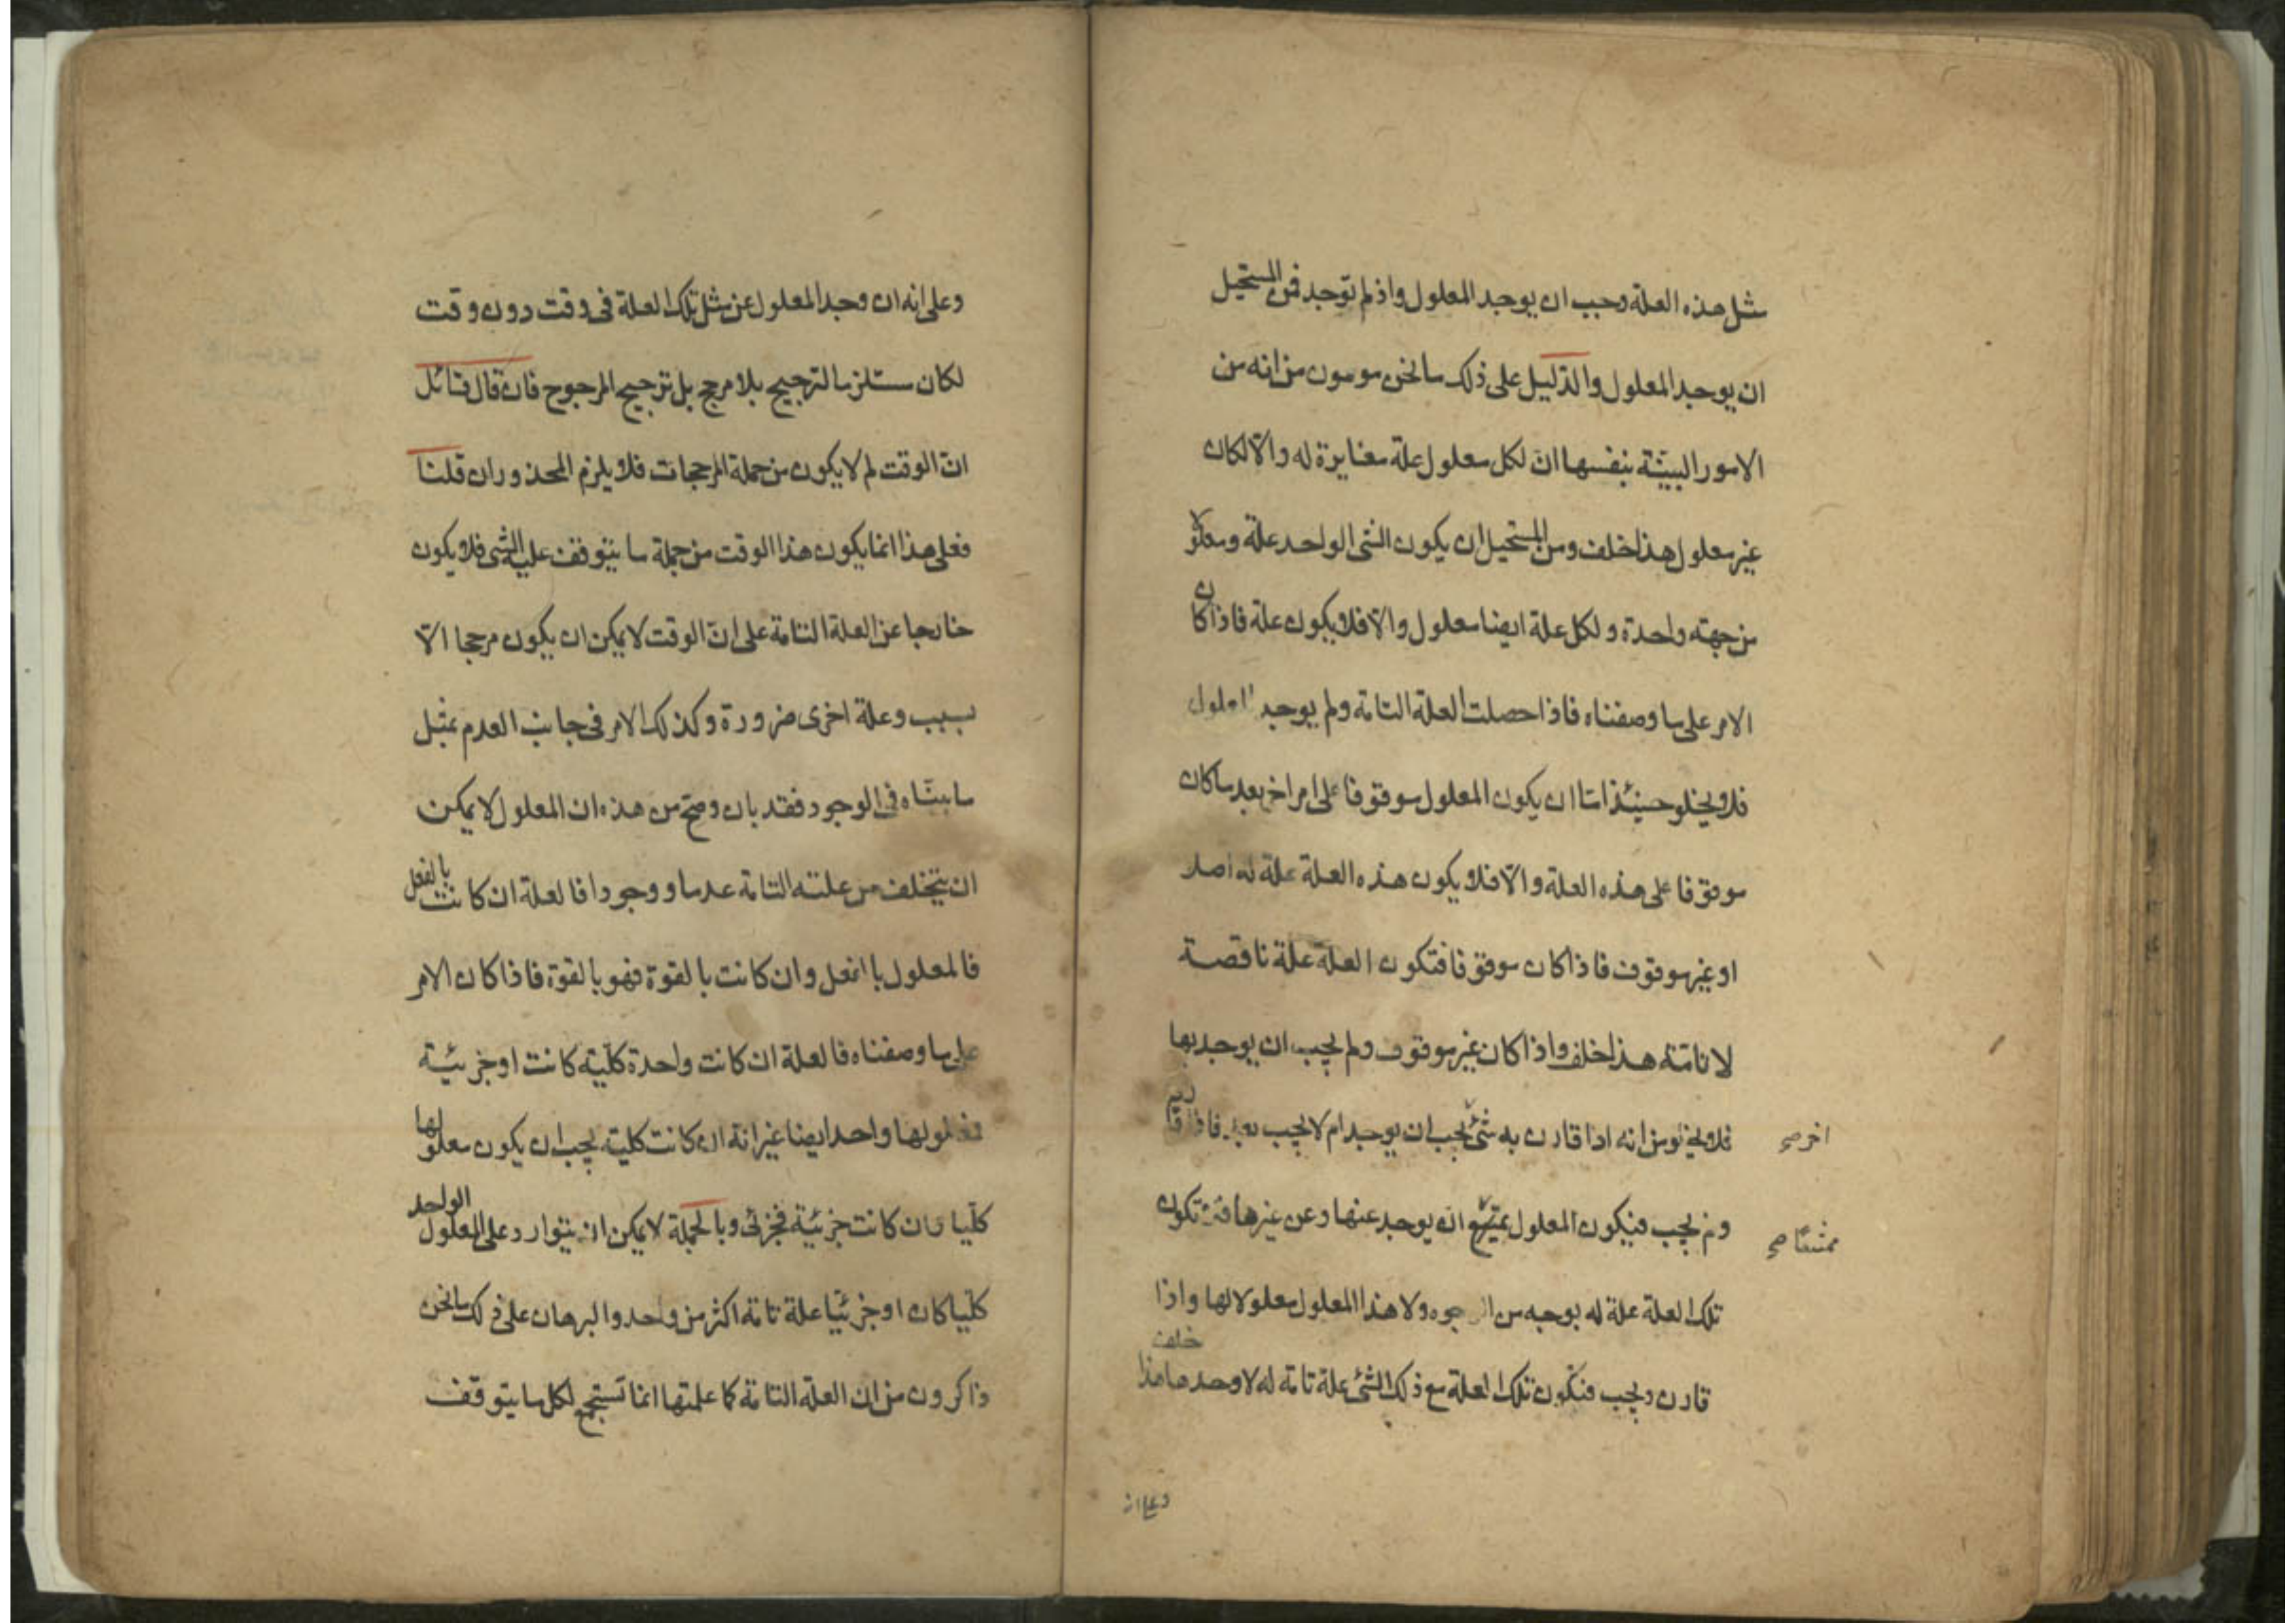 مثل هذه العلة وجب ان يوجد المعلول واذ لم توجد فمن المستحيل
ان يوجد المعلول والدليل على ذلك ما نحن مومون من انه من
الامور البينة بنفسها ان لكل معلول علة مغايرة له والا لكان
غير معلول هذا خلف ومن المستحيل ان يكون الشئ الواحد علة ومعلولا
من جهته واحدة ولكل علة ايضا معلول والا فلا يكون علة فاذا كان
الامر على ما وصفناه فاذا حصلت العلة التامة ولم يوجد المعلول
فلا يخلو حينئذ اما ان يكون المعلول موقوفا على امر اخر بعد ما كان
موقوفا على هذه العلة والا فلا يكون هذه العلة علة له اصلا
او غير موقوف فاذا كان موقوفا فتكون العلة علة ناقصة
لا تامة هذا خلف واذا كان غير موقوف ولم يجب ان يوجد بها
فلا يخلو من انه اذا قارن به شئ يجب ان يوجد ام لا يجب بعد فاذا قارن
اخر صح
ولم يجب فيكون المعلول يمتنع ان يوجد عنها وعن غيرها فلا تكون
ممتنعا صح
تلك العلة علة له بوجه من الوجوه ولا هذا المعلول معلولا لها واذا
قارن ويجب فتكون تلك العلة مع ذلك الشئ علة تامة له لا وحدها هذا خلف
وعلى انه
وعلى انه ان وجد المعلول عن مثل تلك العلة فى وقت دون وقت
لكان مستلزما لترجيح بلا مرجح بل ترجيح المرجوح فان قال قائل
ان الوقت لم لا يكون من جملة المرجحات فلا يلزم المحذوران قلنا
فعلى هذا انما يكون هذا الوقت من جملة ما يتوقف عليه الشى فلا يكون
خارجا عن العلة التامة على ان الوقت لا يمكن ان يكون مرجحا الا
بسبب وعلة اخرى ضرورة وكذلك الامر فى جانب العدم بمثل
ما بيناه فى الوجود فقد بان وصح من هذه ان المعلول لا يمكن
ان يتخلف من علته التامة عدما ووجودا فالعلة ان كانت بالفعل
فالمعلول بالفعل وان كانت بالقوة فهو بالقوة فاذا كان الامر
على ما وصفناه فالعلة ان كانت واحدة كلية كانت او جزئية
فمعلولها واحد ايضا غير انه ان كانت كلية يجب ان يكون معلولها
كليا وان كانت جزئية فجزئى وبالجملة لا يمكن ان يتوارد على المعلول الواحد
كليا كان او جزئيا علة تامة اكثر من واحد والبرهان على ذلك ما نحن
ذاكرون من ان العلة التامة كما علمتها انما تستجمع لكل ما يتوقف